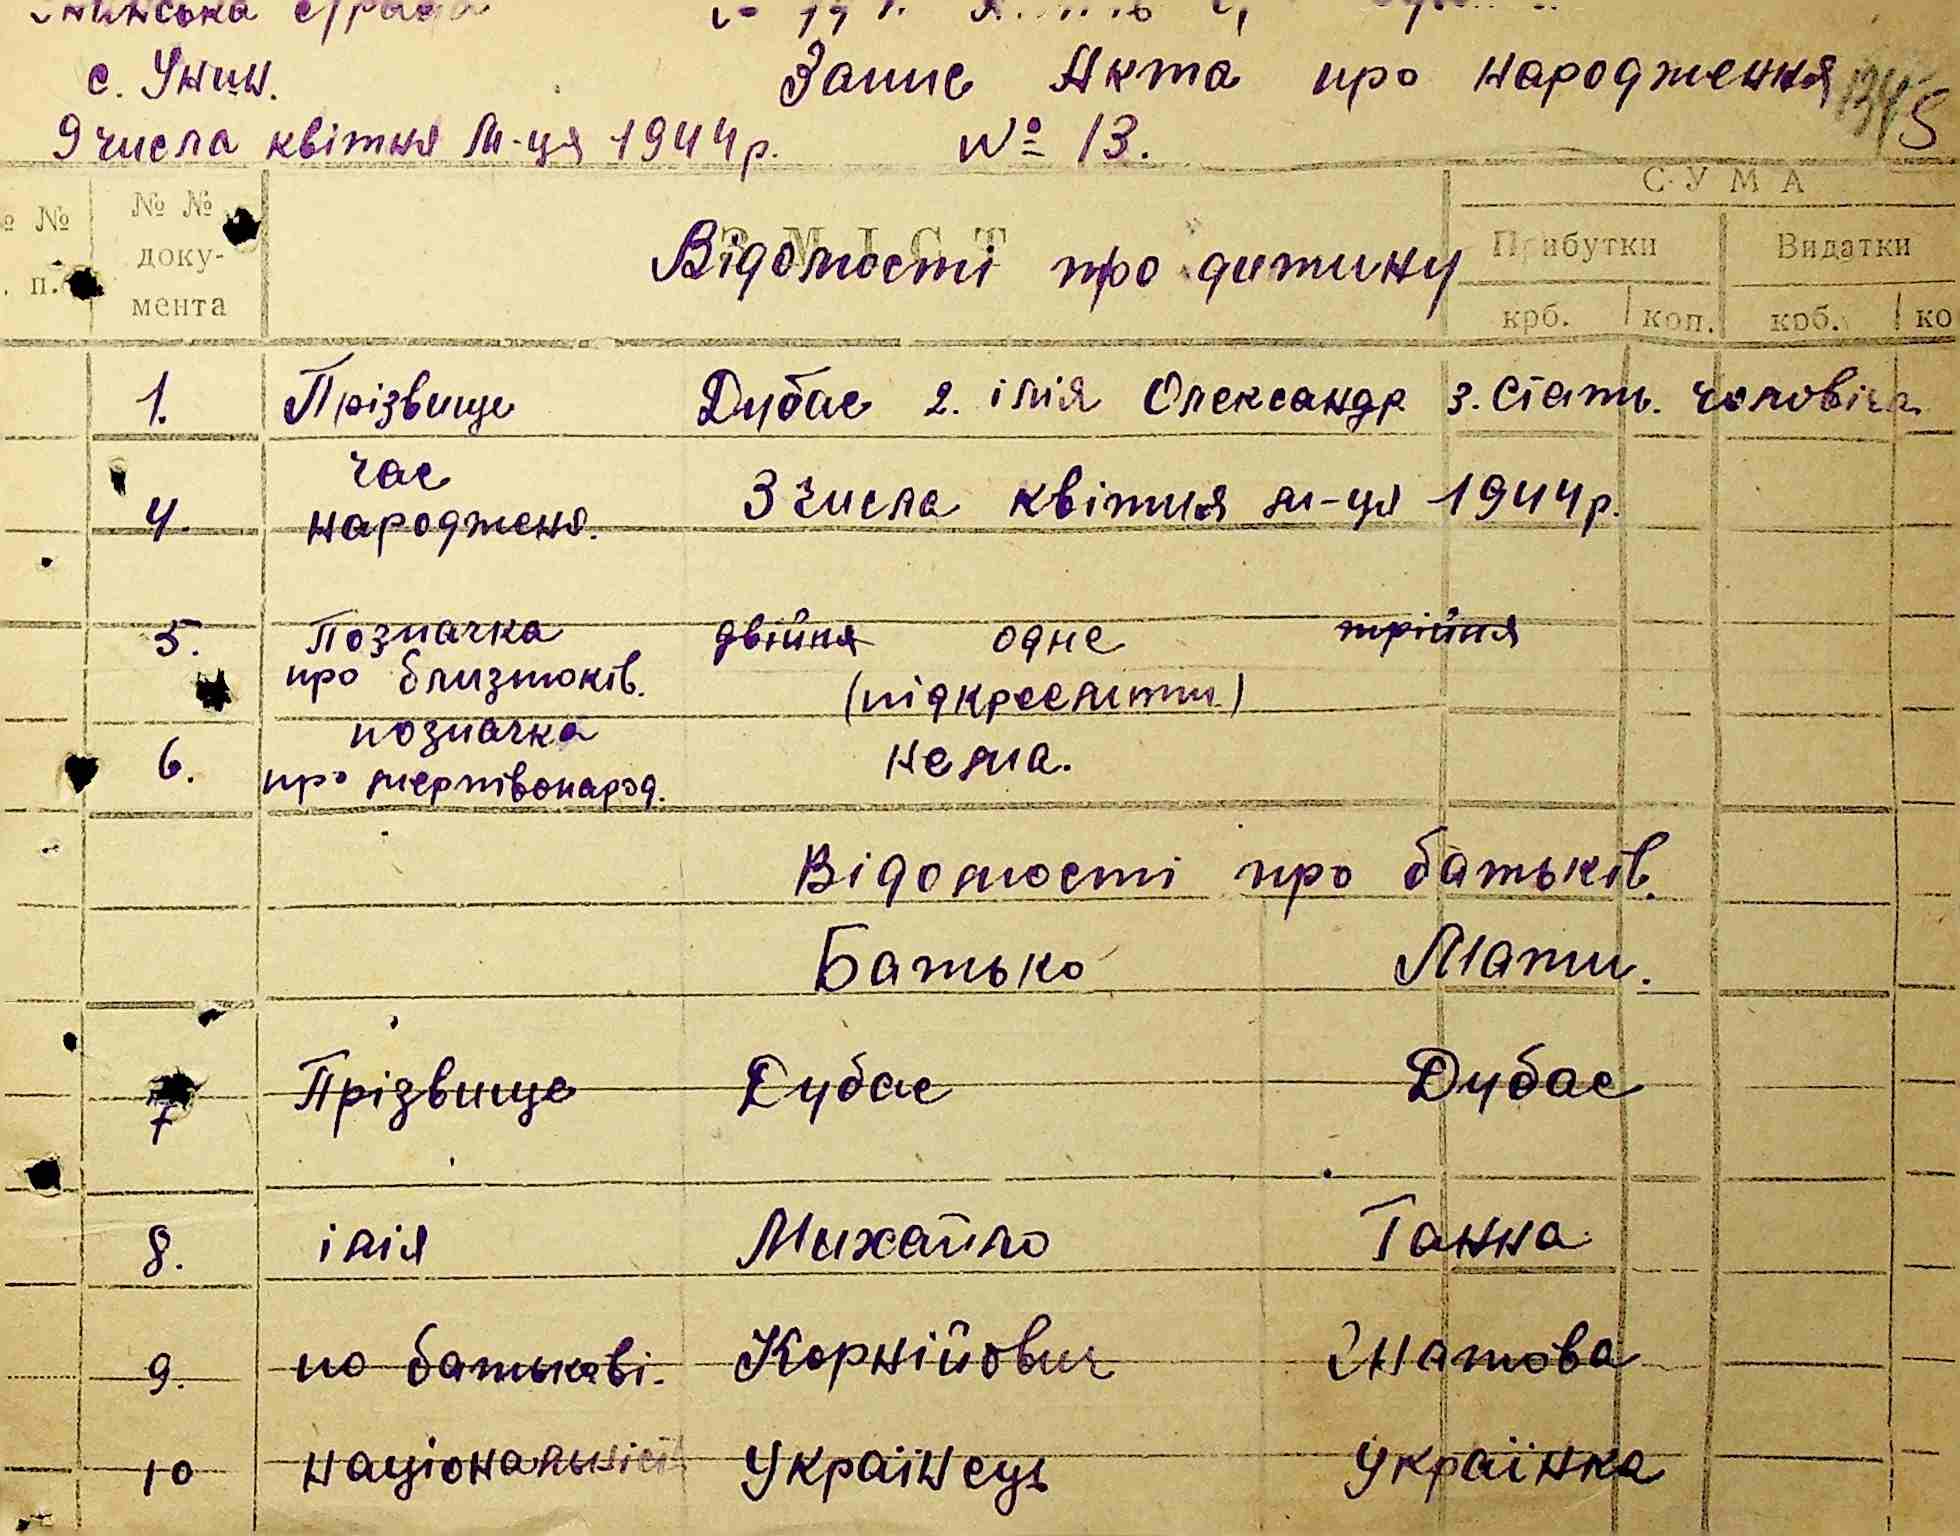 с. Унин. Запис Акта про народження
9 числа квітня м-ця 1944 р. № 13.
С У М А
№ № № № ЗМІСТ Прибутки Видатки
доку-
п. мента Відомості про дитину
крб. коп. крб. ко
1. Прізвище Дубас 2. імія Олександр 3. Стать. чоловіча
4. час
народженя. 3 числа квітня м-ця 1944 р.
5. Позначка двійня одне трійня
про близнюків. (підкреслити)
6. позначка нема.
про мертвонарод.
Відомості про батьків.
Батько Мати.
7 Прізвище Дубас Дубас
8. імія Михайло Ганна
9. по батькові. Корнійович Гнатова
10 національність Українець Українка